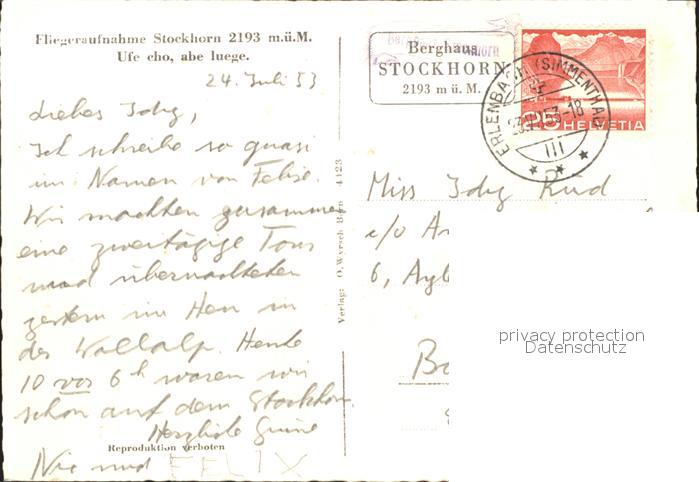 Fliegeraufnahme Stockhorn 2193 m.ü.M.
Ufe cho, abe luege.
24. Juli 53
Liebes Idy,
Ich schreibe so quasi
im Namen von Felix.
Wir machten zusammen
eine zweitägige Tour
und übernachteten
gestern im Heu in
der Wallalp. Heute
10 vor 6 h waren wir
schon auf dem Stockhorn.
Herzliche Grüsse
und FELIX
Reproduktion verboten
Verlag: O. Wyrsch Bern 4123
Berghaus
STOCKHORN
2193 m ü. M.
ERLENBACH (SIMMENTHAL)
III
HELVETIA
Miss Idy
c/o
6,
privacy protection
Datenschutz